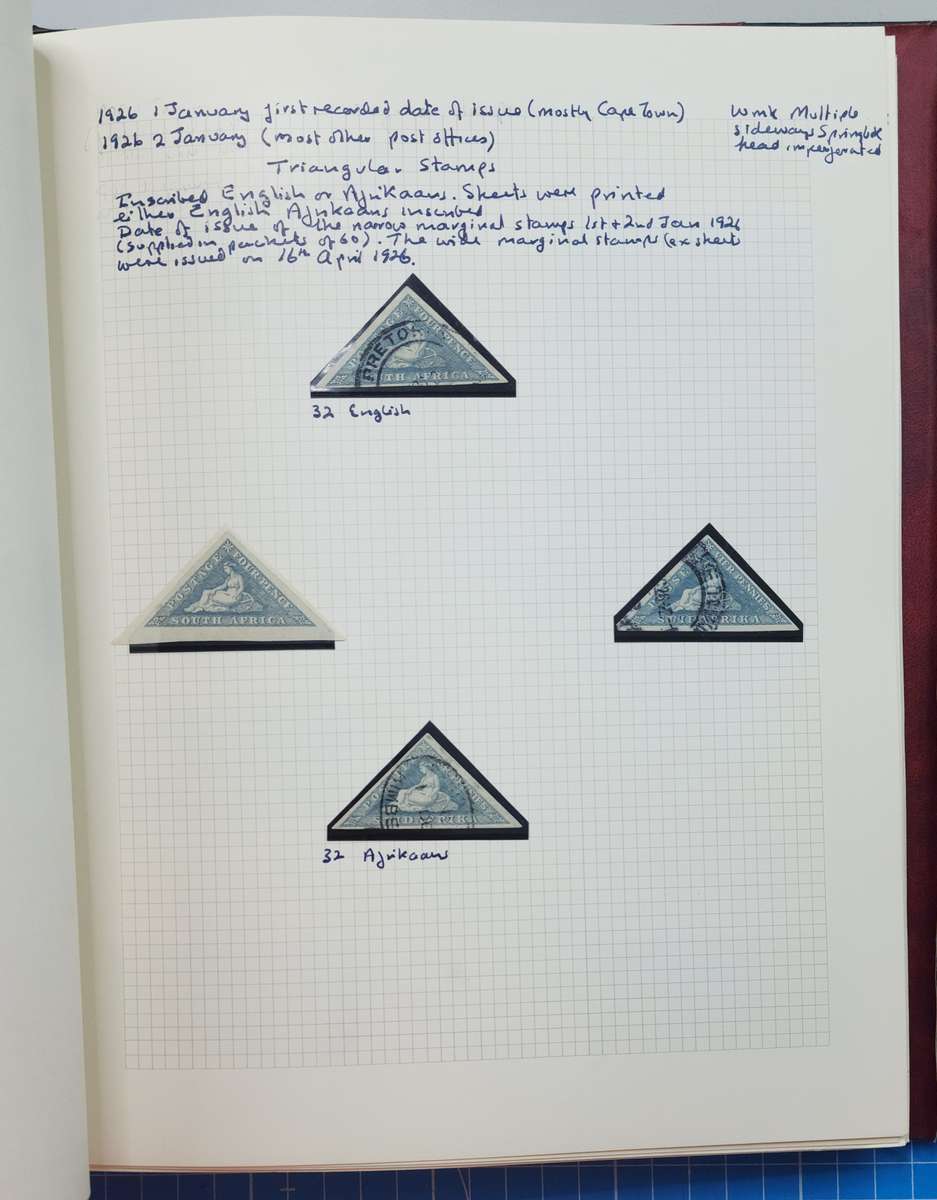 1926 1 January first recorded date of issue (mostly Cape Town)
1926 2 January (most other post offices)
Wmk Multiple
sideways Springbok
head imperforated
Triangular Stamps
Inscribed English or Afrikaans. Sheets were printed
either English Afrikaans inscribed
Date of issue of the narrow marginal stamps 1st + 2nd Jan 1926
(supplied in packets of 60). The wide marginal stamps (ex sheets
were issued on 16th April 1926.
FOUR PENCE
PRETO
TH AFRICA
32 English
POSTAGE FOUR PENCE
SOUTH AFRICA
PENNIES
RIKA
SUIDAFRIKA
32 Afrikaans